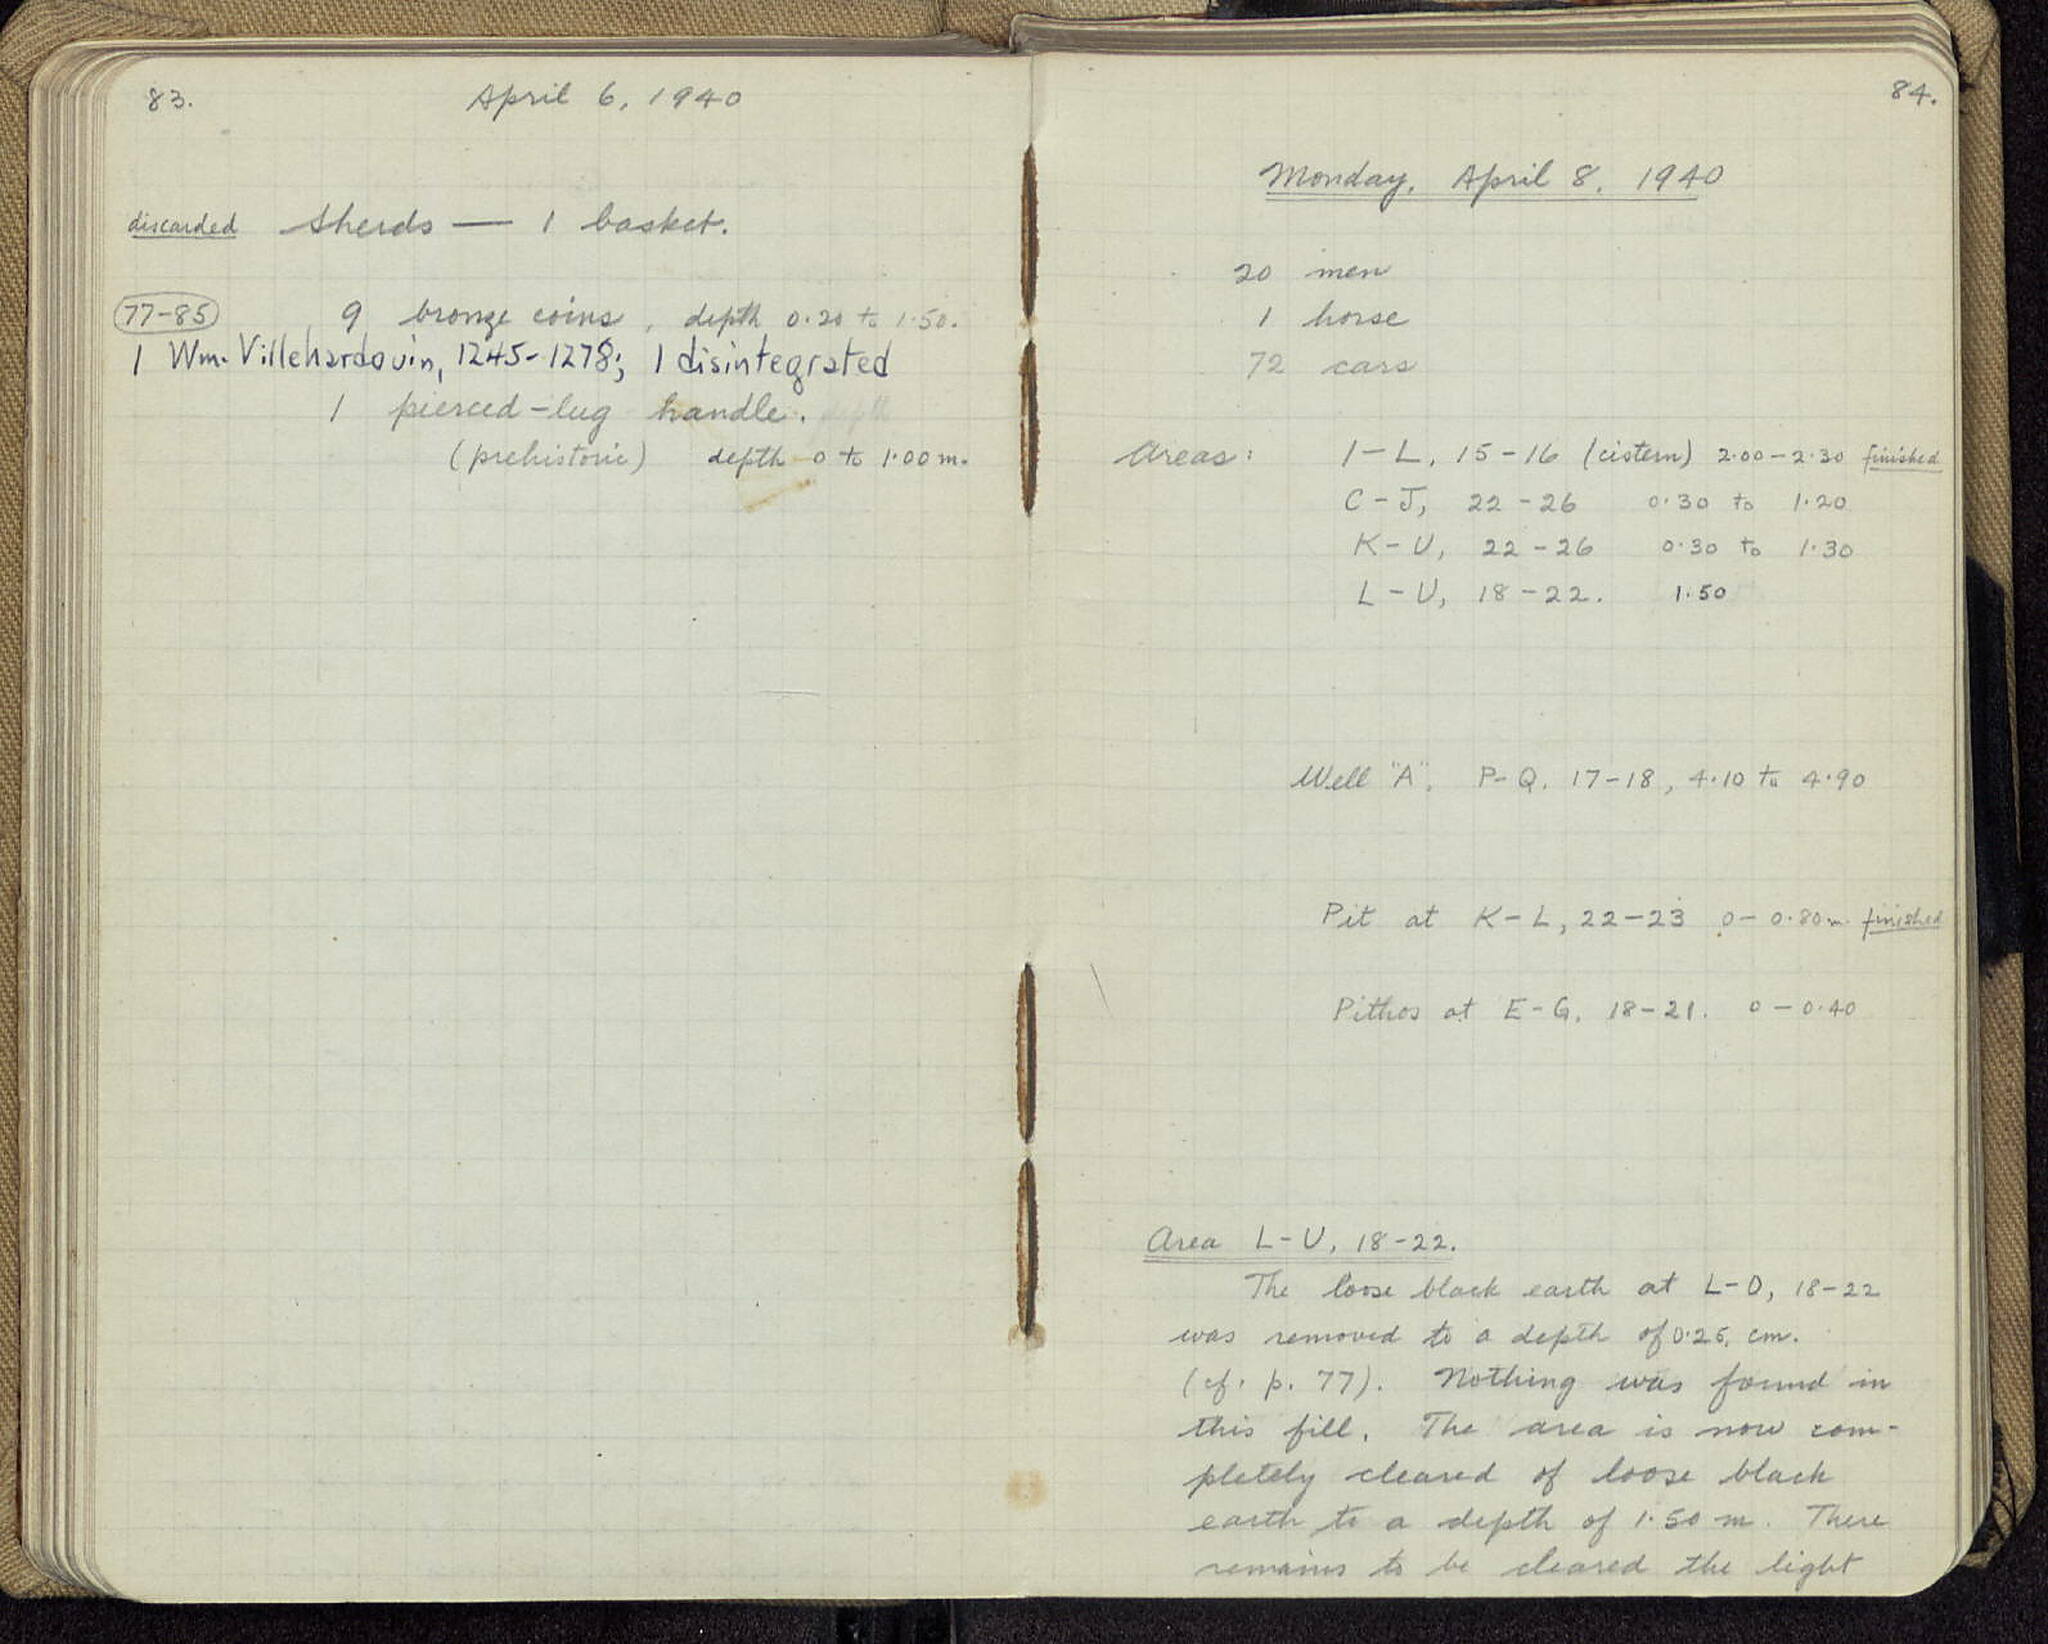 83.
April 6, 1940
discarded Sherds — 1 basket.
77-85 9 bronze coins, depth 0.20 to 1.50.
1 Wm. Villehardouin, 1245-1278; 1 disintegrated
1 pierced-lug handle.
(prehistoric) depth 0 to 1.00 m.
84.
Monday, April 8, 1940
20 men
1 horse
72 cars
Areas: I-L, 15-16 (cistern) 2.00-2.30 finished
C-J, 22-26 0.30 to 1.20
K-U, 22-26 0.30 to 1.30
L-U, 18-22. 1.50
Well "A". P-Q. 17-18, 4.10 to 4.90
Pit at K-L, 22-23 0-0.80 m. finished
Pithos at E-G. 18-21. 0-0.40
Area L-U, 18-22.
The loose black earth at L-O, 18-22
was removed to a depth of 0.25 cm.
(cf. p. 77). Nothing was found in
this fill. The area is now com-
pletely cleared of loose black
earth to a depth of 1.50 m. There
remains to be cleared the light